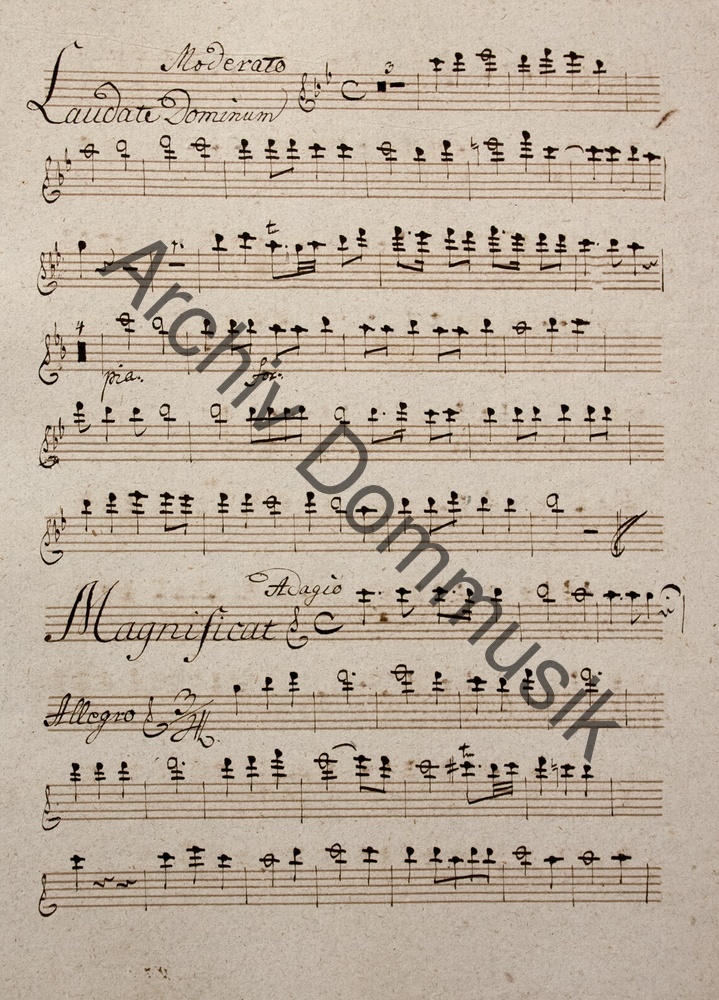 Moderato
Laudate Dominum
3
t
4
pia. for.
Adagio
Magnificat
Allegro 3/4
tr
Archiv Dommusik